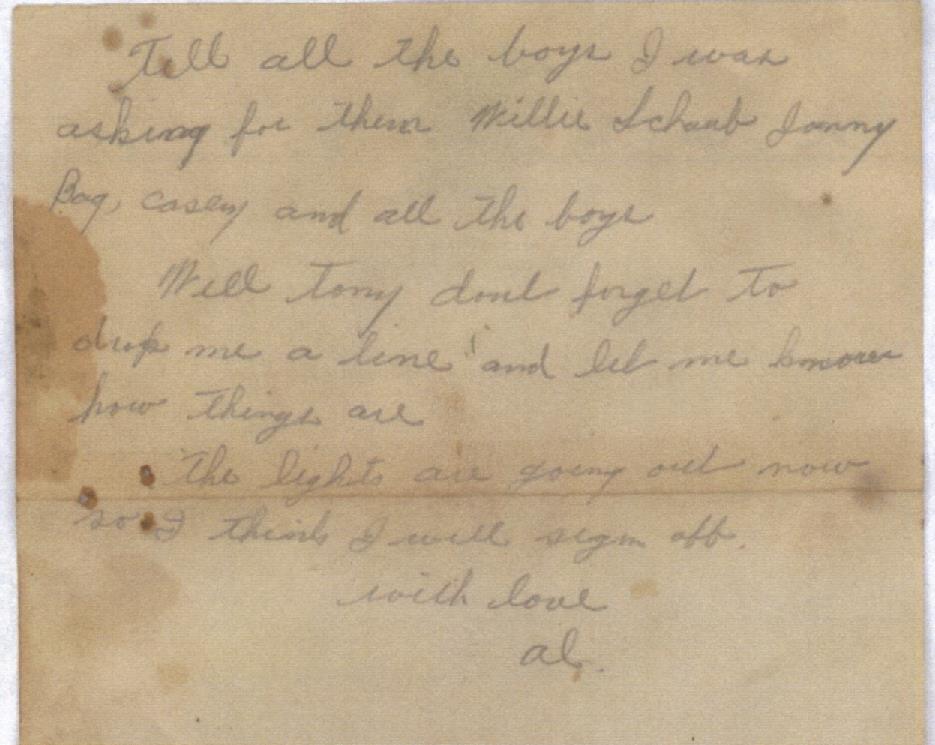 Tell all the boys I was
asking for them Willie Schaub Jonny
Bag, casey and all the boys
Well tony dont forget to
drop me a line and let me know
how things are
The lights are going out now
so I think I will sign off.
with love
al.